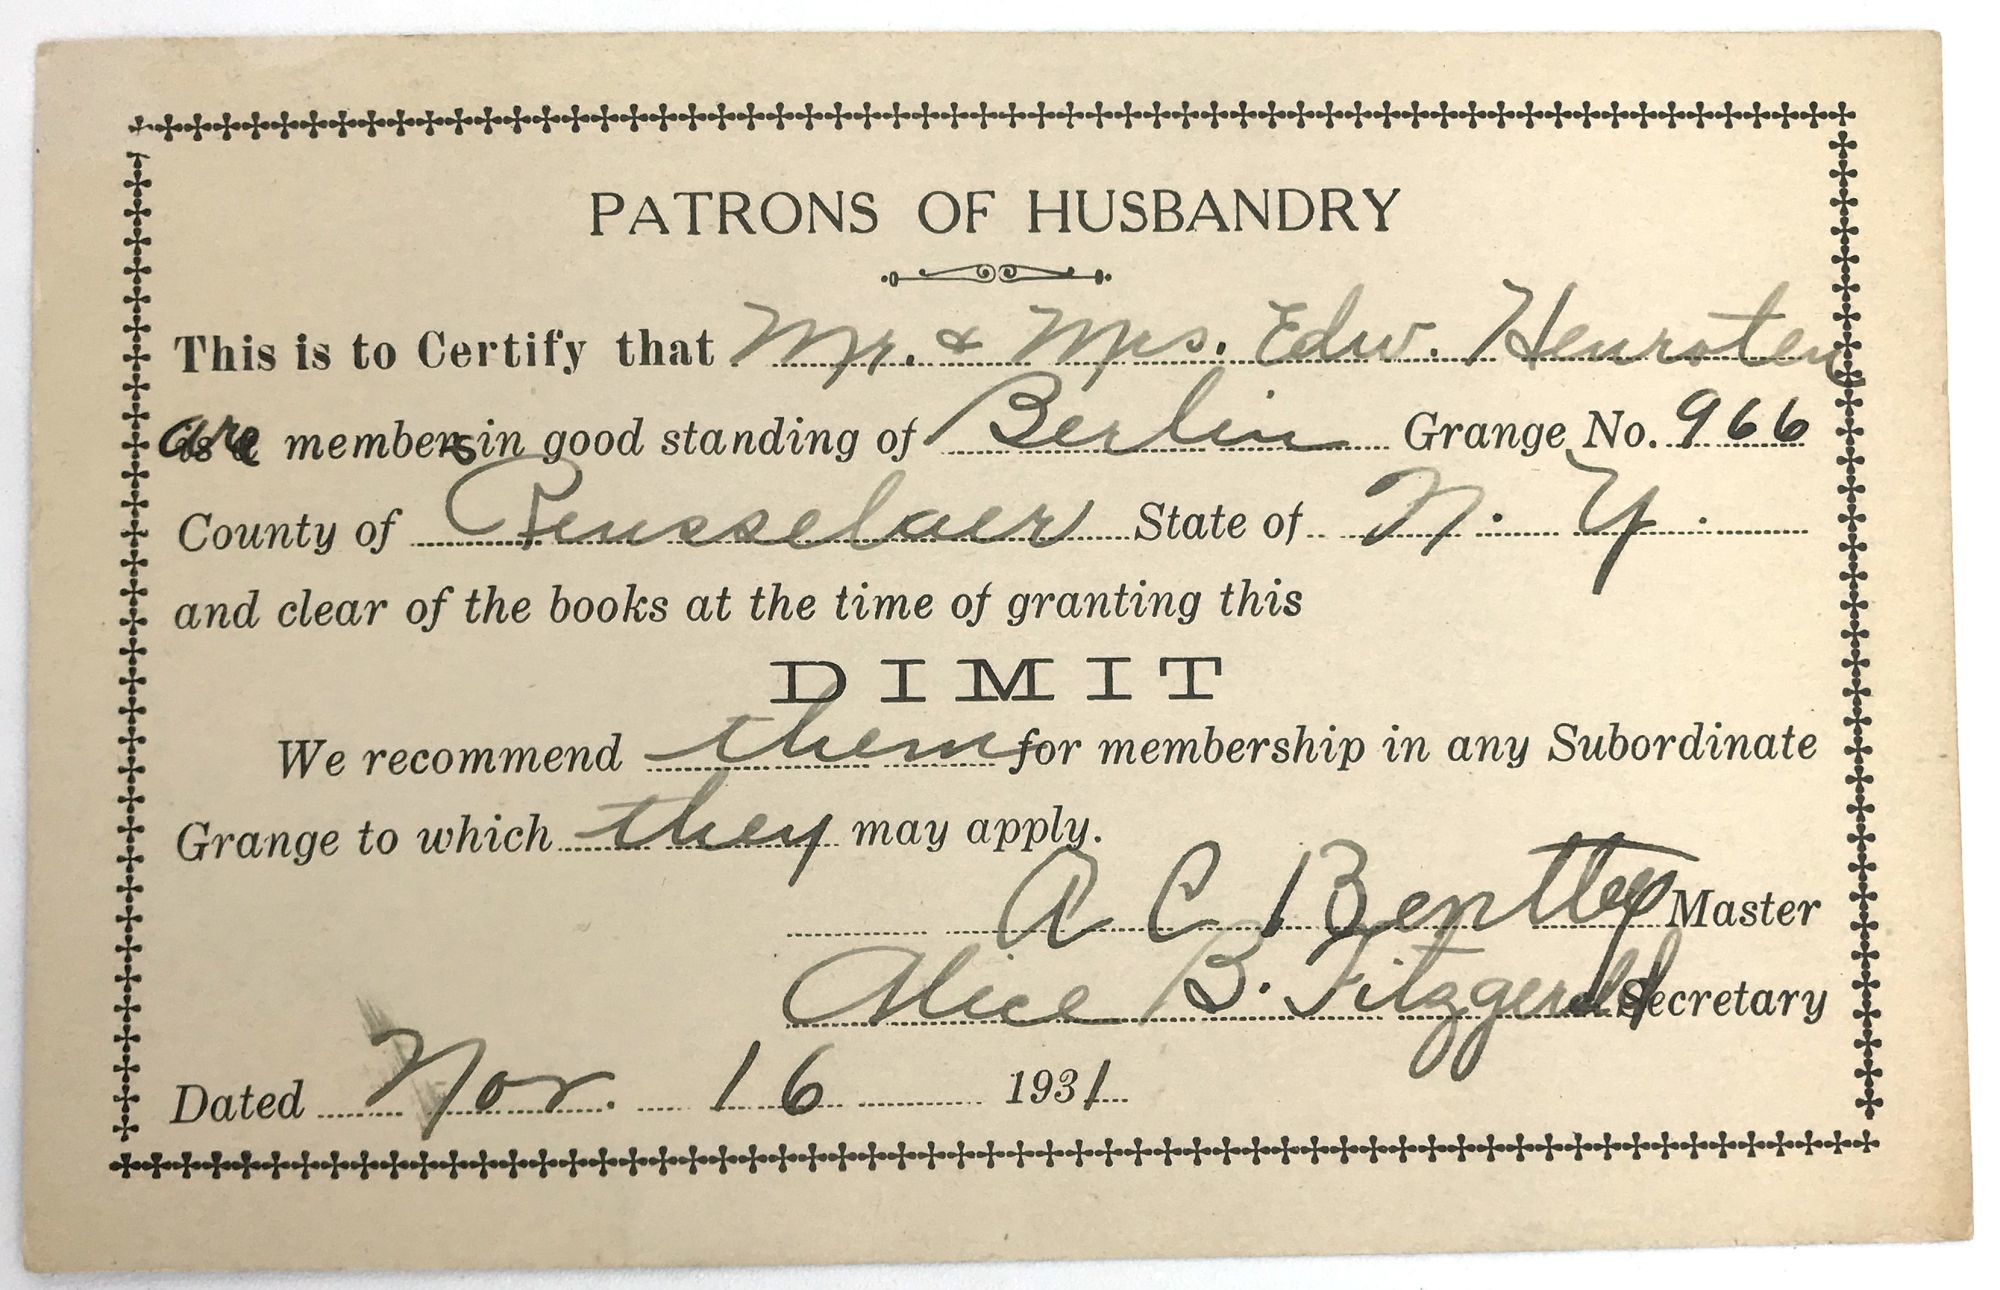 PATRONS OF HUSBANDRY
This is to Certify that Mr. & Mrs. Edw. Henroten
are members in good standing of Berlin Grange No. 966
County of Rensselaer State of N. Y.
and clear of the books at the time of granting this
DIMIT
We recommend them for membership in any Subordinate
Grange to which they may apply.
A C Bentley Master
Alice B. Fitzgerald Secretary
Dated Nov. 16 1931